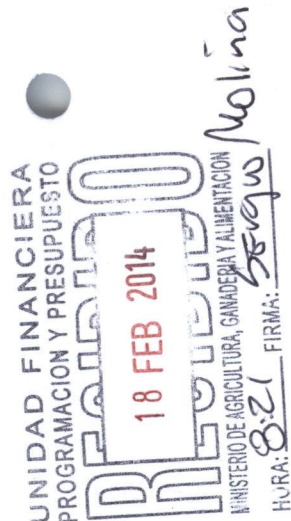 UNIDAD FINANCIERA
PROGRAMACION Y PRESUPUESTO
RECIBIDO
18 FEB 2014
MINISTERIO DE AGRICULTURA, GANADERIA Y ALIMENTACION
HORA: 8:21 FIRMA: Sergio Molina